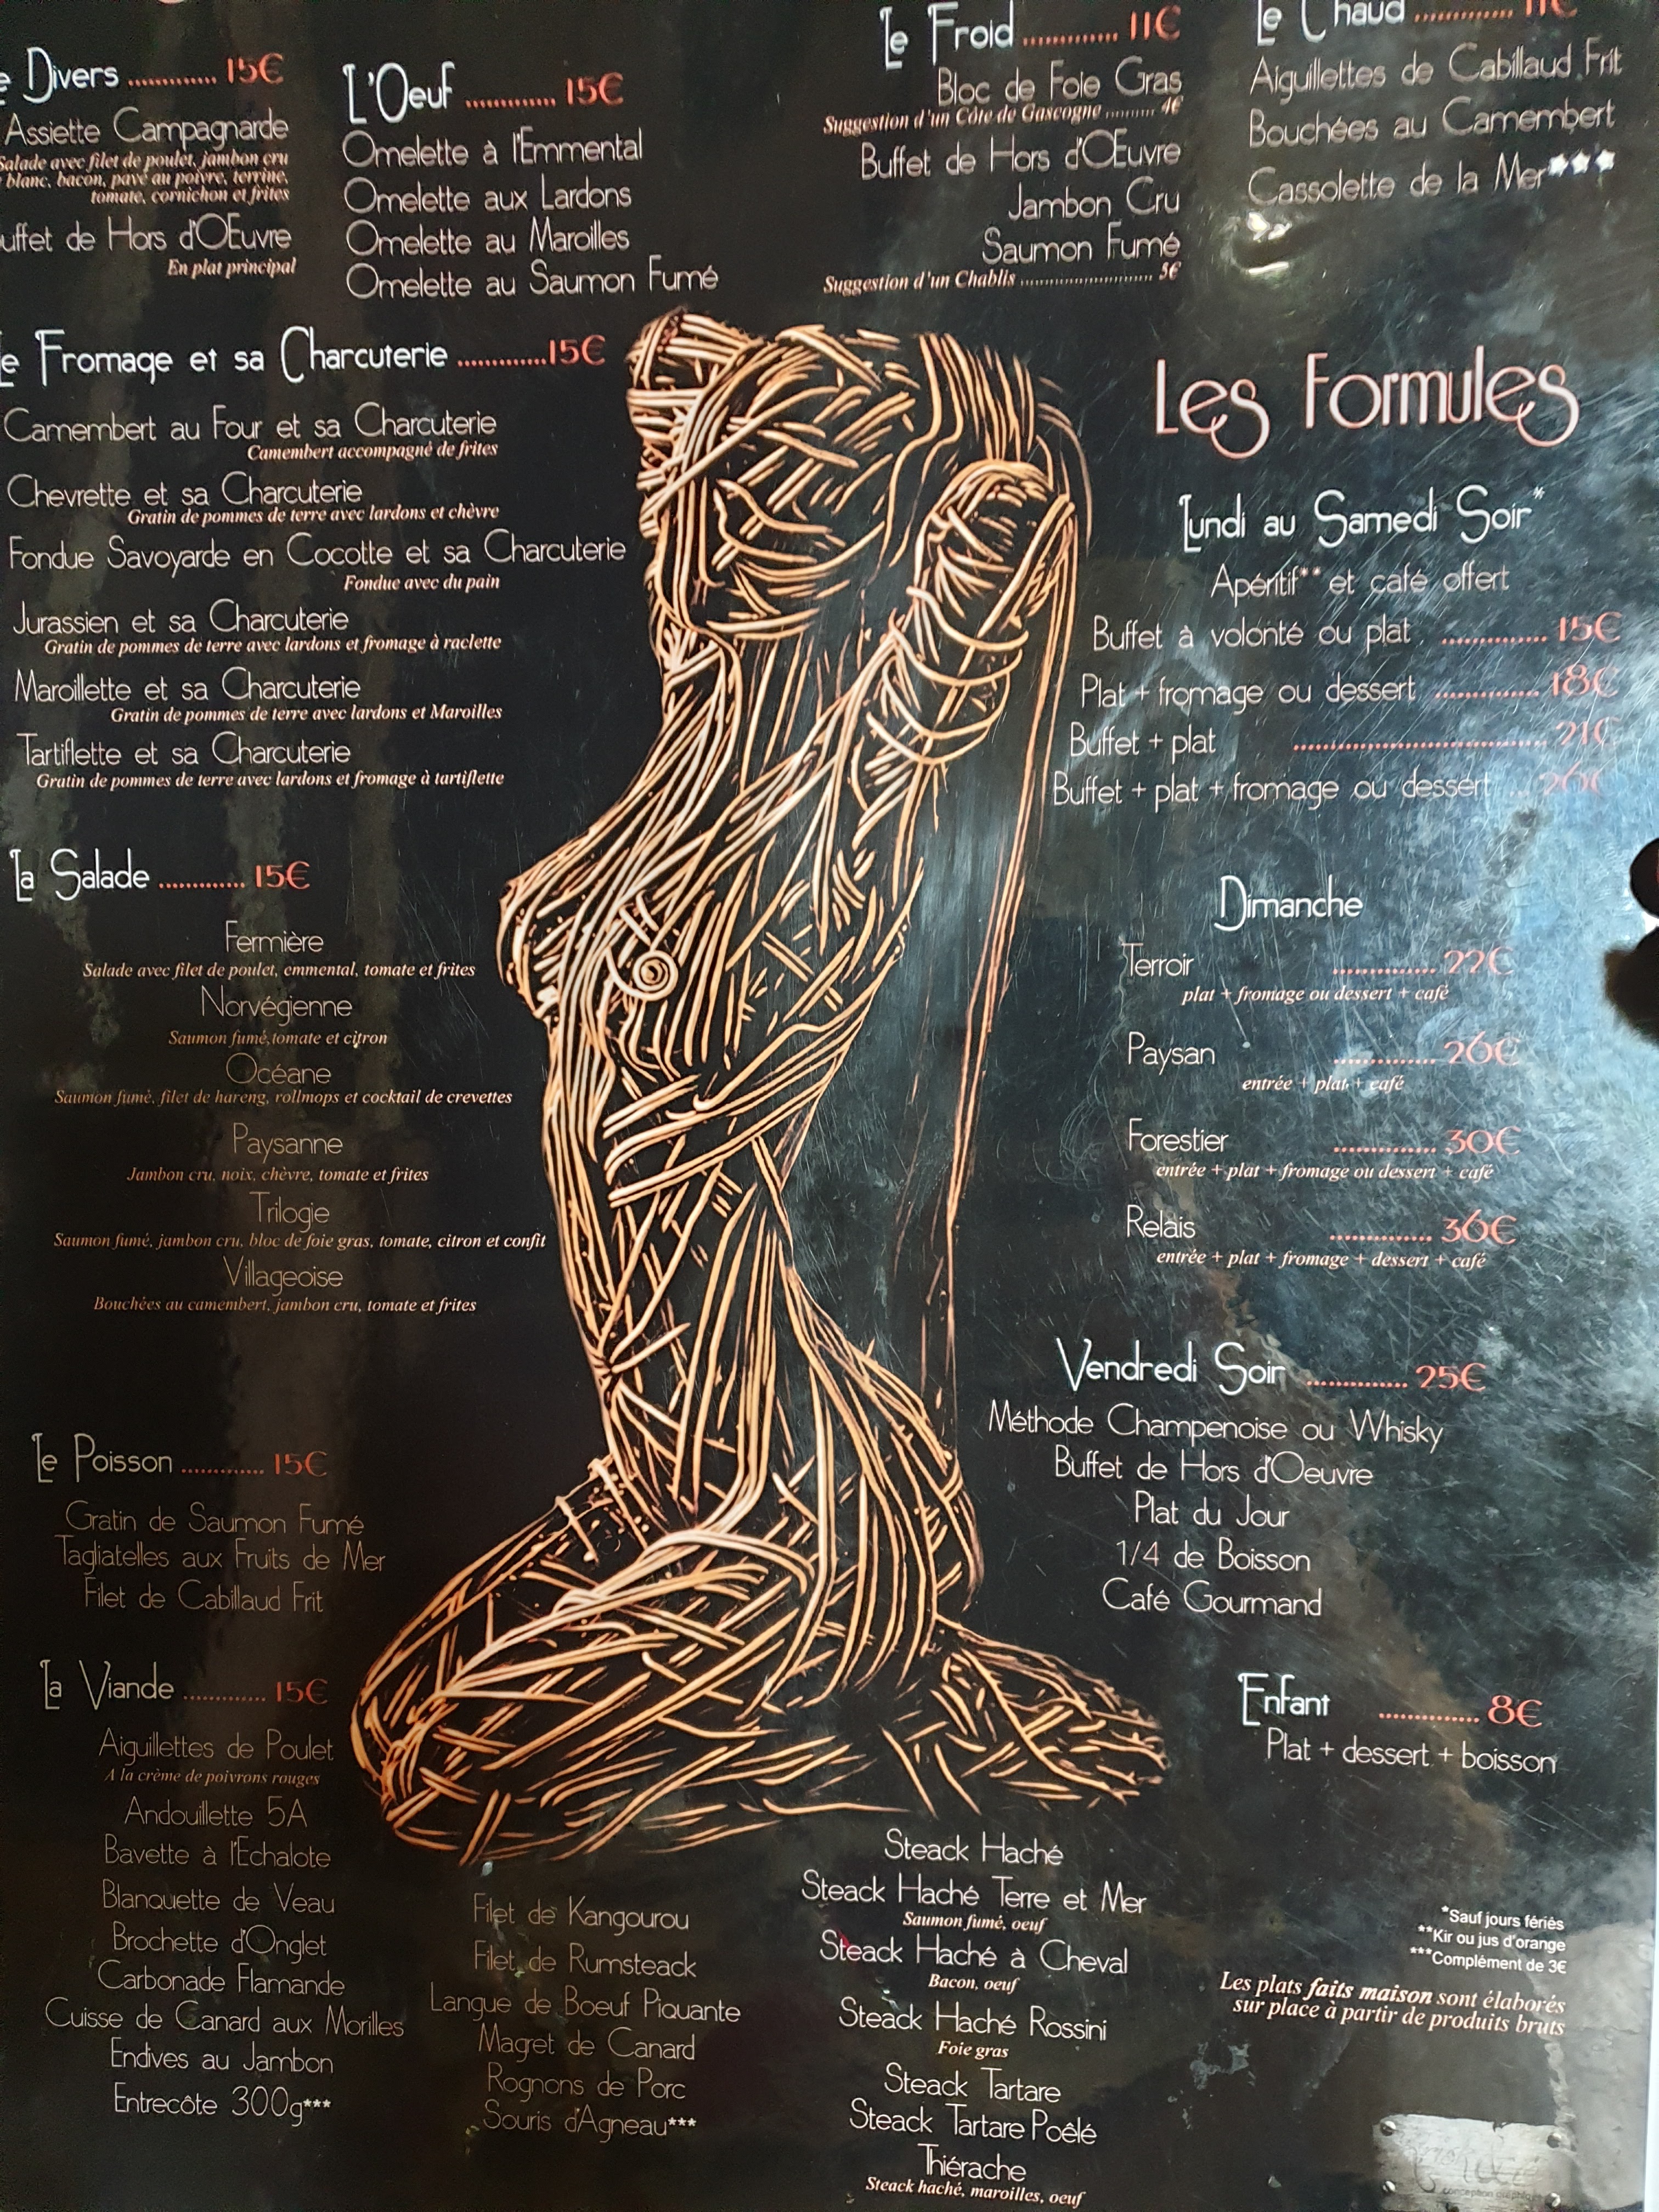 Divers ............. 15€
Assiette Campagnarde
Salade avec filet de poulet, jambon cru
blanc, bacon, pavé au poivre, terrine,
tomate, cornichon et frites
Buffet de Hors d'OEuvre
En plat principal
L'Oeuf ............. 15€
Omelette à l'Emmental
Omelette aux Lardons
Omelette au Maroilles
Omelette au Saumon Fumé
Le Froid ............. 11€
Bloc de Foie Gras
Suggestion d'un Côte de Gascogne .......... 4€
Buffet de Hors d'OEuvre
Jambon Cru
Saumon Fumé
Suggestion d'un Chablis ........................... 5€
Le Chaud ............. 11€
Aiguillettes de Cabillaud Frit
Bouchées au Camembert
Cassolette de la Mer***
Le Fromage et sa Charcuterie .............15€
Camembert au Four et sa Charcuterie
Camembert accompagné de frites
Chevrette et sa Charcuterie
Gratin de pommes de terre avec lardons et chèvre
Fondue Savoyarde en Cocotte et sa Charcuterie
Fondue avec du pain
Jurassien et sa Charcuterie
Gratin de pommes de terre avec lardons et fromage à raclette
Maroillette et sa Charcuterie
Gratin de pommes de terre avec lardons et Maroilles
Tartiflette et sa Charcuterie
Gratin de pommes de terre avec lardons et fromage à tartiflette
La Salade ............. 15€
Fermière
Salade avec filet de poulet, emmental, tomate et frites
Norvégienne
Saumon fumé, tomate et citron
Océane
Saumon fumé, filet de hareng, rollmops et cocktail de crevettes
Paysanne
Jambon cru, noix, chèvre, tomate et frites
Trilogie
Saumon fumé, jambon cru, bloc de foie gras, tomate, citron et confit
Villageoise
Bouchées au camembert, jambon cru, tomate et frites
Le Poisson ............. 15€
Gratin de Saumon Fumé
Tagliatelles aux Fruits de Mer
Filet de Cabillaud Frit
La Viande ............. 15€
Aiguillettes de Poulet
A la crème de poivrons rouges
Andouillette 5A
Bavette à l'Echalote
Blanquette de Veau
Brochette d'Onglet
Carbonade Flamande
Cuisse de Canard aux Morilles
Endives au Jambon
Entrecôte 300g***
Filet de Kangourou
Filet de Rumsteack
Langue de Boeuf Piquante
Magret de Canard
Rognons de Porc
Souris d'Agneau***
Steack Haché
Steack Haché Terre et Mer
Saumon fumé, oeuf
Steack Haché à Cheval
Bacon, oeuf
Steack Haché Rossini
Foie gras
Steack Tartare
Steack Tartare Poêlé
Thiérache
Steack haché, maroilles, oeuf
Les Formules
Lundi au Samedi Soir*
Apéritif** et café offert
Buffet à volonté ou plat ............... 15€
Plat + fromage ou dessert ............... 18€
Buffet + plat ..................................... 21€
Buffet + plat + fromage ou dessert ... 26€
Dimanche
Terroir ............... 22€
plat + fromage ou dessert + café
Paysan ............... 26€
entrée + plat + café
Forestier ............... 30€
entrée + plat + fromage ou dessert + café
Relais ............... 36€
entrée + plat + fromage + dessert + café
Vendredi Soir ............... 25€
Méthode Champenoise ou Whisky
Buffet de Hors d'Oeuvre
Plat du Jour
1/4 de Boisson
Café Gourmand
Enfant ............... 8€
Plat + dessert + boisson
*Sauf jours fériés
**Kir ou jus d'orange
***Complément de 3€
Les plats faits maison sont élaborés
sur place à partir de produits bruts